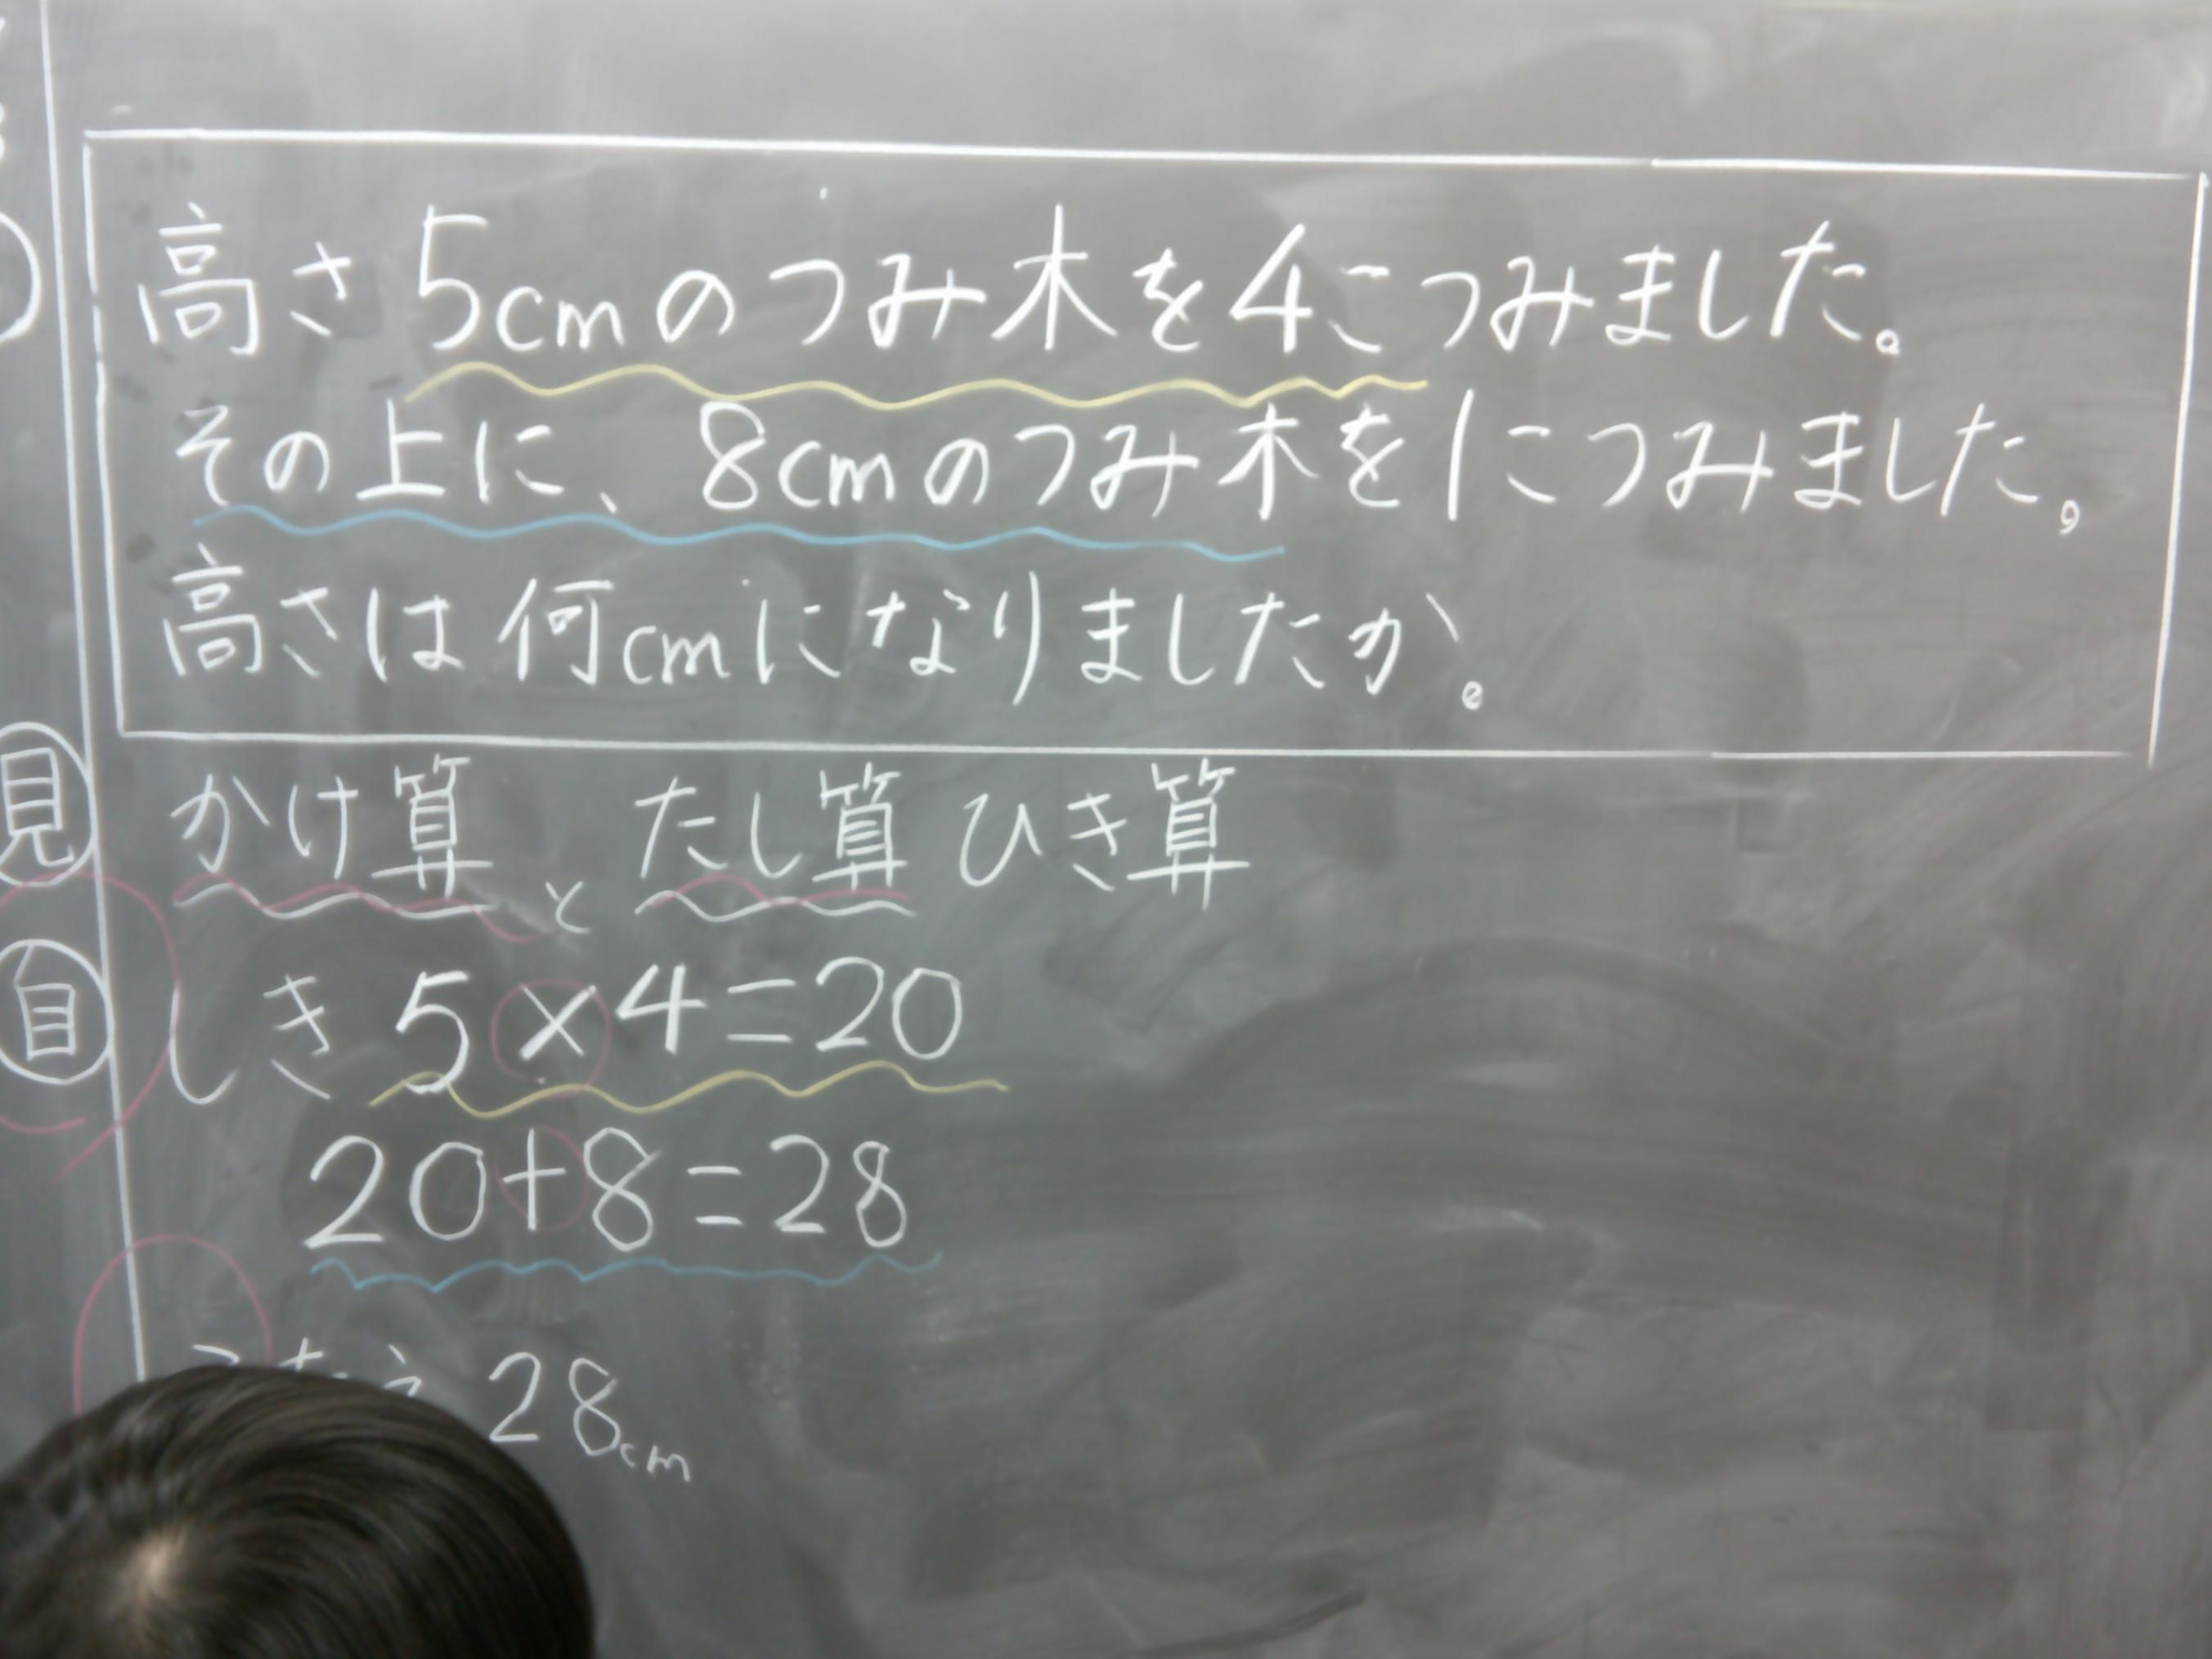 高さ5cmのつみ木を4こつみました。
その上に、8cmのつみ木を1こつみました。
高さは何cmになりましたか。
見 かけ算と たし算 ひき算
自 しき 5×4=20
20+8=28
28cm